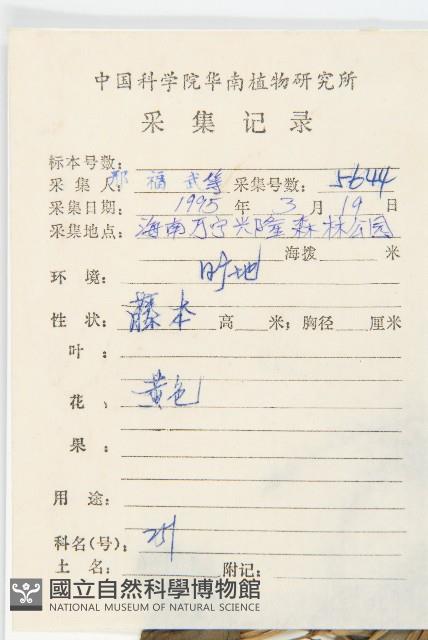 中国科学院华南植物研究所
采集记录
标本号数:
采集人: 邢福武等 采集号数: 5644
采集日期: 1995年3月19日
采集地点: 海南万宁兴隆森林公园
海拨 米
环境: 旷地
性状: 藤本 高 米; 胸径 厘米
叶:
花、 黄色
果:
用途:
科名(号): 251
土名: 附记:
國立自然科學博物館
NATIONAL MUSEUM OF NATURAL SCIENCE